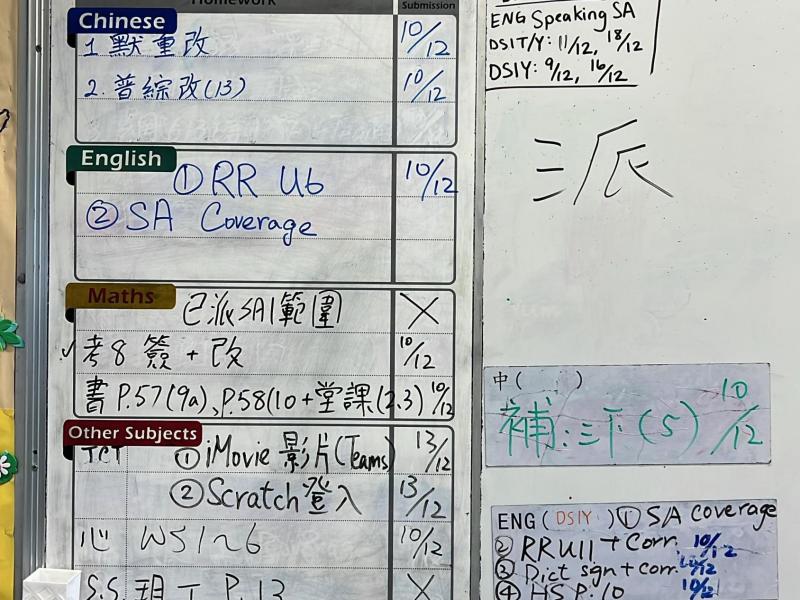 Homework
Submission
Chinese
1. 默重改 10/12
2. 普綜改(13) 10/12
English
① RR U6 10/12
② SA Coverage
Maths
已派SA1範圍 X
✓考8 簽 + 改 10/12
書 P.57(9a), P.58(10 + 堂課(2.3) 10/12
Other Subjects
① iMovie 影片(Teams) 13/12
② Scratch登入 13/12
心 WS1~6 10/12
S.S. P.13 X
ENG Speaking SA
DSIT/Y: 11/12, 18/12
DSIY: 9/12, 16/12
三派
中( )
補:三下(5) 10/12
ENG (DSIY) ① SA coverage
② RRU11 + Corr. 10/12
③ Dict sgn + corr. 10/12
④ HS P.10 10/12